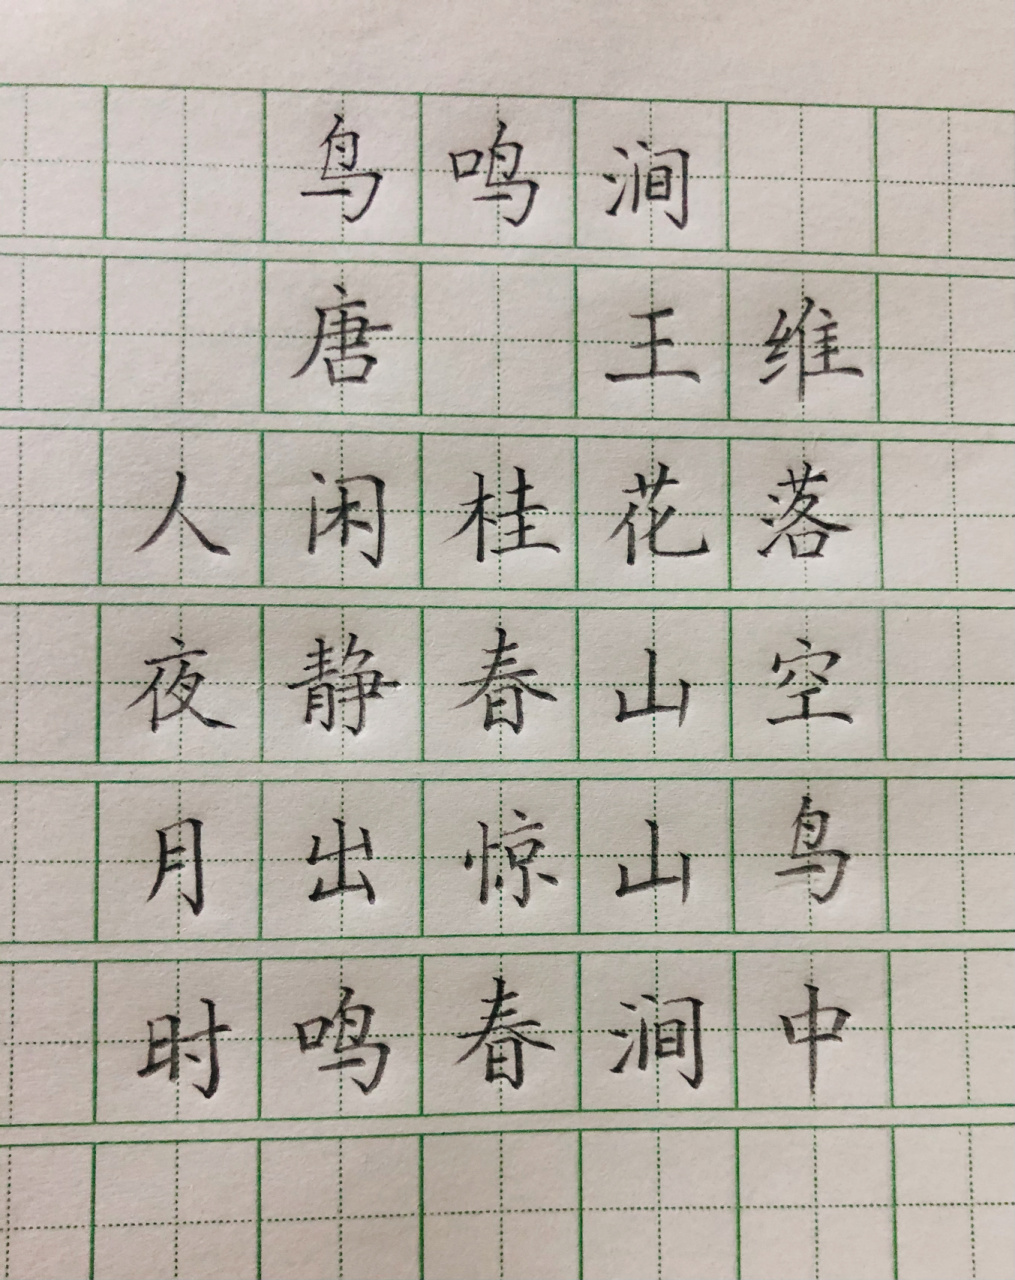 鸟鸣涧
唐 王维
人闲桂花落
夜静春山空
月出惊山鸟
时鸣春涧中